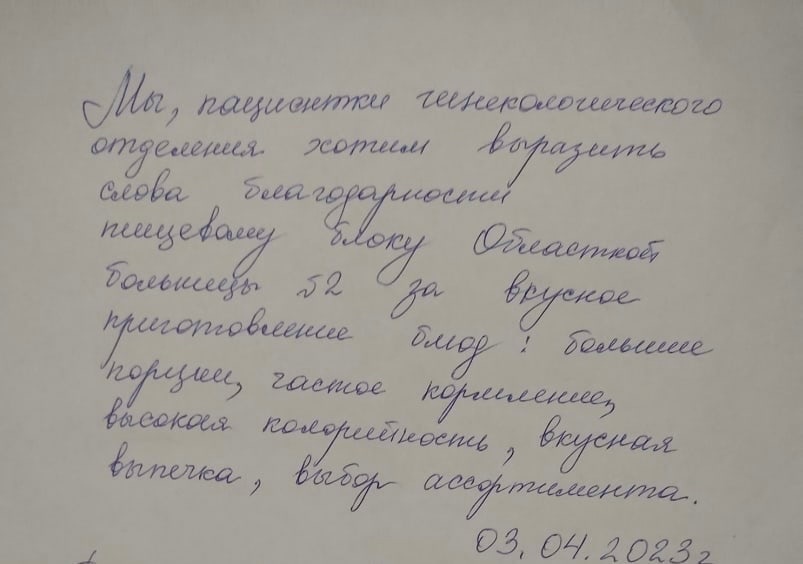 Мы, пациентки гинекологического
отделения хотим выразить
слова благодарности
пищевому блоку Областной
больницы №2 за вкусное
приготовление блюд: большие
порции, частое кормление,
высокая калорийность, вкусная
выпечка, выбор ассортимента.
03.04.2023г